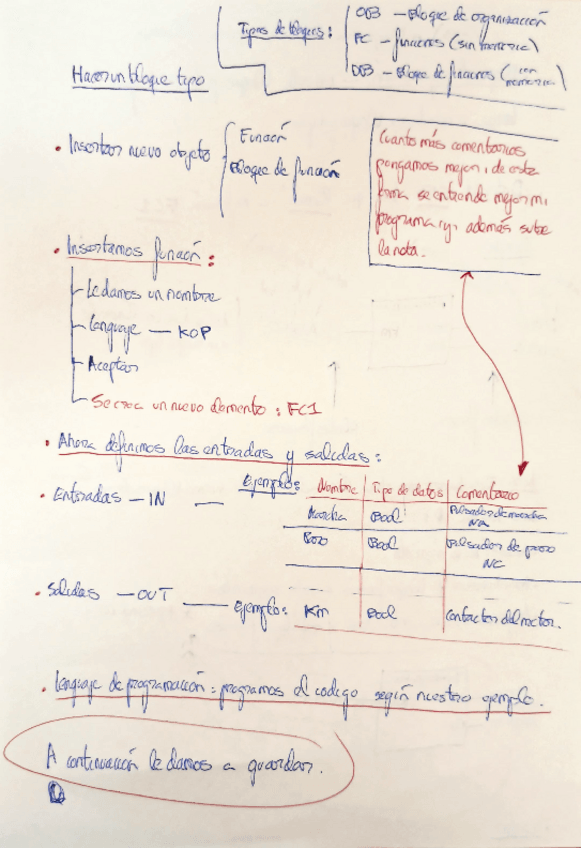 Tipos de bloques: OB - Bloque de organización
FC - funciones (sin memoria)
DB - Bloque de funciones (con memoria)
Hacer un bloque tipo
• Insertar nuevo objeto
Función
Bloque de función
Cuanto más comentarios
pongamos mejor, de esta
forma se entiende mejor mi
programa y, además sube
la nota.
• Insertamos función:
Le damos un nombre
Lenguaje — KOP
Aceptar
Se crea un nuevo elemento: FC1
• Ahora definimos las entradas y salidas:
• Entradas - IN — Ejemplo:
Nombre Tipo de datos Comentario
Marcha Bool Pulsador de marcha NA
Paro Bool Pulsador de paro NC
• Salidas - OUT — Ejemplo: KM Bool Contactor del motor.
• Lenguaje de programación: programos el codigo según nuestro ejemplo.
A continuación le damos a guardar.